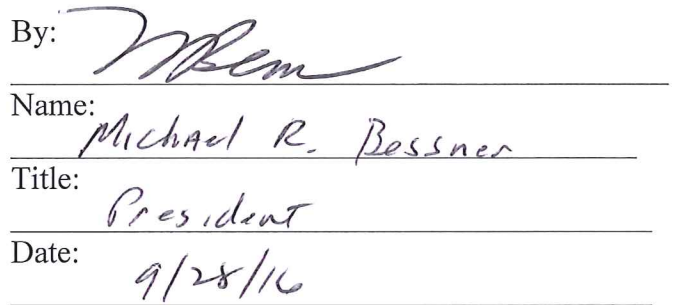 By:
Name:
Michael R. Bessner
Title:
President
Date:
9/28/16